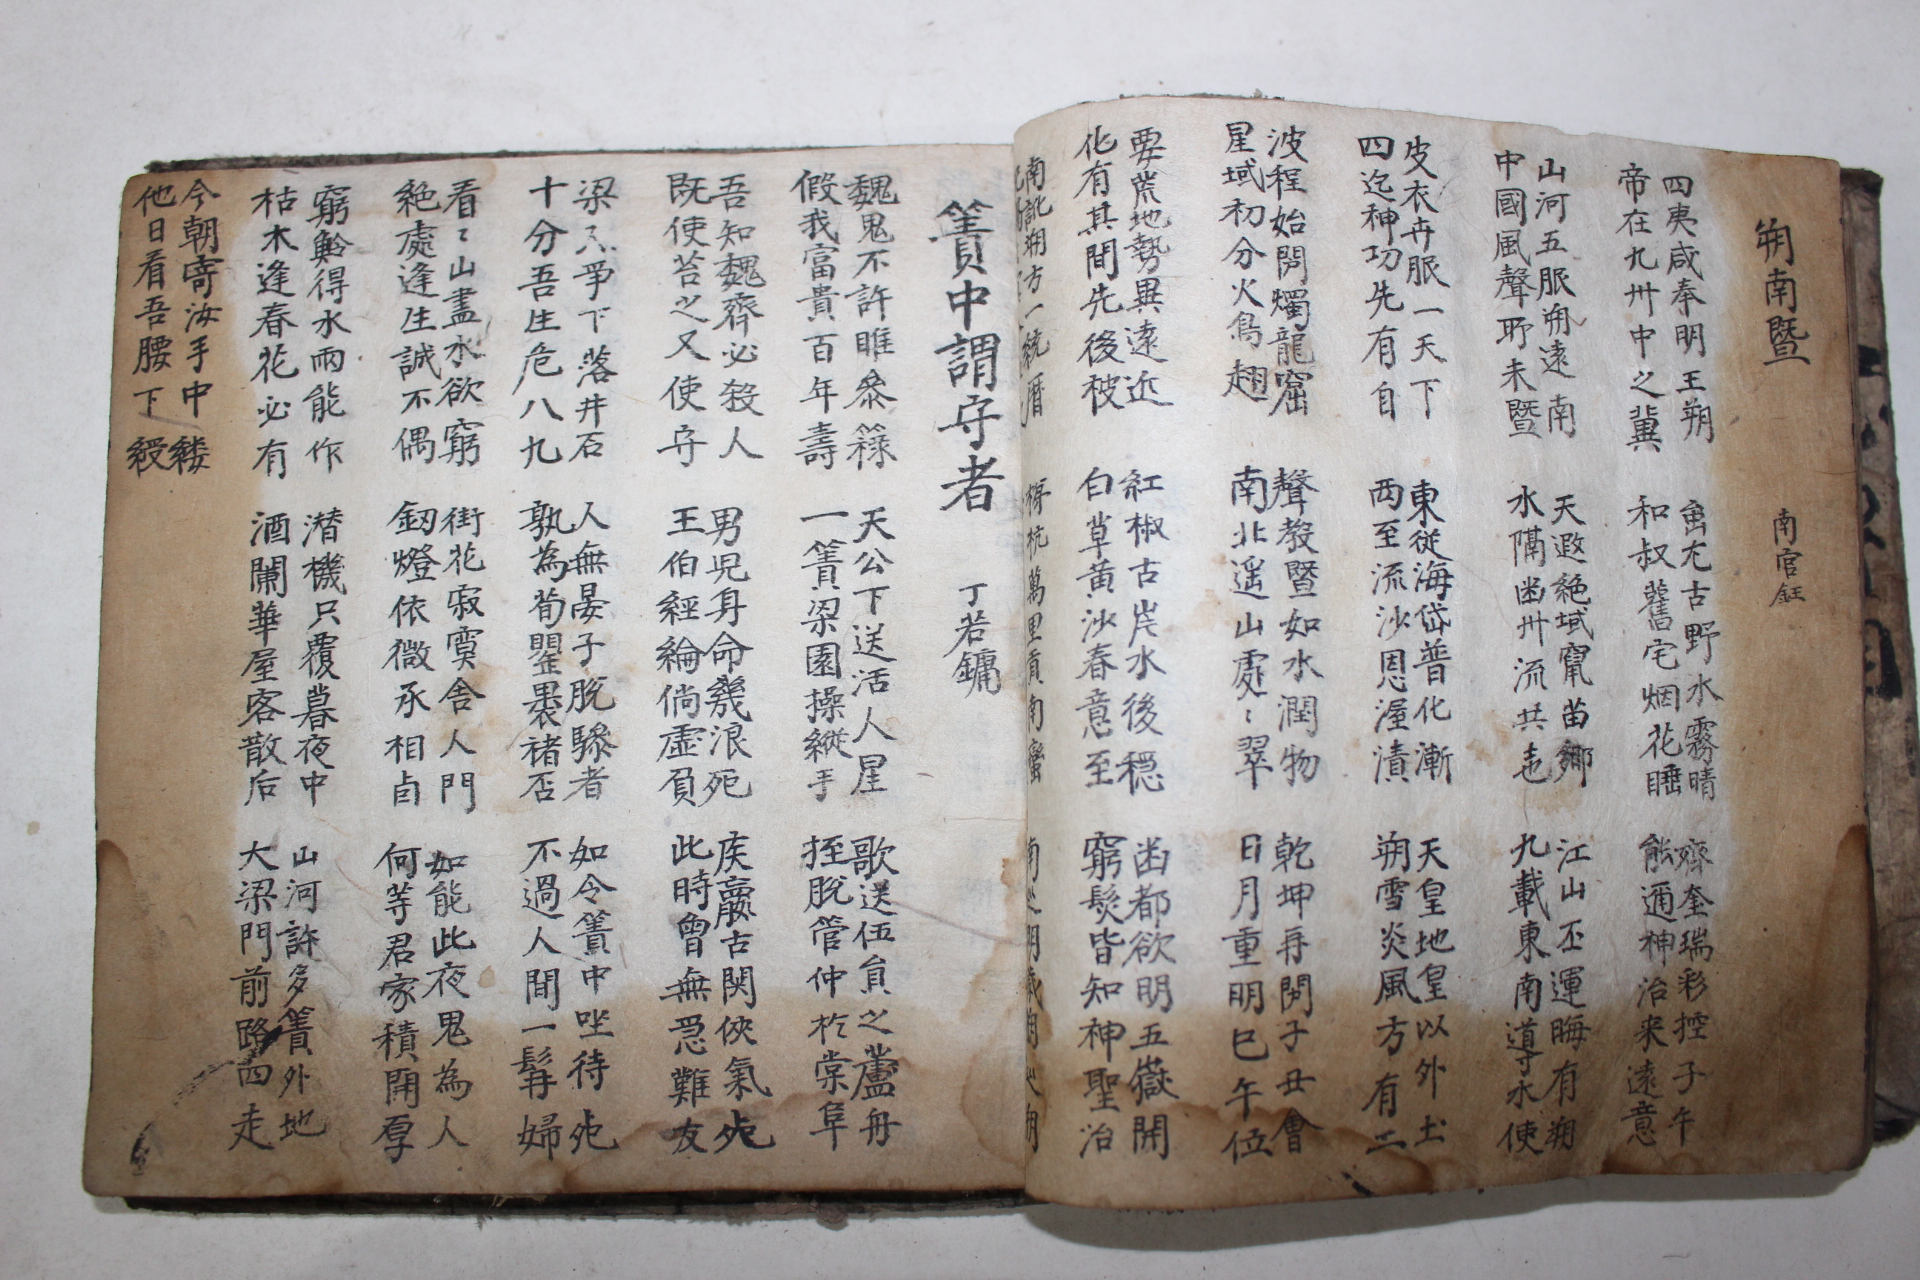 朔南暨 南宮鈺
四夷咸奉明王朔
帝在九州中之冀
禹尤古野水霧晴
和叔舊宅烟花睡
齊奎瑞彩控子午
能通神治来遠意
山河五服朔遠南
中國風聲所未暨
天遐絶域竄苗鄉
水隔凾州流共
江山丕運晦有朔
九載東南導水使
皮衣卉服一天下
四迄神功先有自
東從海岱普化漸
西至流沙恩渥漬
天皇地皇以外土
朔雪炎風方有二
波程始開燭龍窟
星域初分火鳥翅
聲教暨如水潤物
南北遥山處〻翠
乾坤再開子丑會
日月重明巳午位
要荒地勢異遠近
化有其間先後被
紅椒古岸水後穏
白草黄沙春意至
凾都欲明五嶽開
窮髮皆知神聖治
南訛朔方一統曆
萬里貢南蠻
簀中謂守者 丁若鏞
魏鬼不許睢叅籙
假我富貴百年壽
天公下送活人星
一簀梁園操縱手
歌送伍員之蘆舟
挃脫管仲於棠阜
吾知魏齊必殺人
既使苔之又使守
男児身命幾浪死
王伯經綸倘虛負
侯嬴古関俠氣死
此時曾無急難友
梁不爭下落井石
十分吾生危八九
人無晏子脫驂者
孰為荀罃褁禇否
如令簀中坐待死
不過人間一髯婦
看〻山盡水欲窮
絶處逢生誠不偶
街花寂寞舍人門
釰燈依微承相卣
如能此夜鬼為人
何等君家積開厚
窮鱗得水雨能作
枯木逢春花必有
潜機只覆暮夜中
酒闌華屋客散后
山河許多簀外地
大梁門前路四走
今朝寄汝手中縷
他日看吾腰下綬